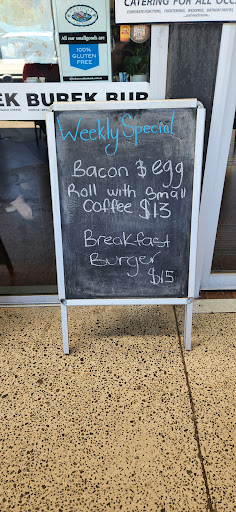 All our smallgoods are
100%
GLUTEN
FREE
CATERING FOR ALL OCC
EK BUREK BUR
Weekly Special
Bacon $ egg
Roll with Small
Coffee $13
Breakfast
Burger
$15